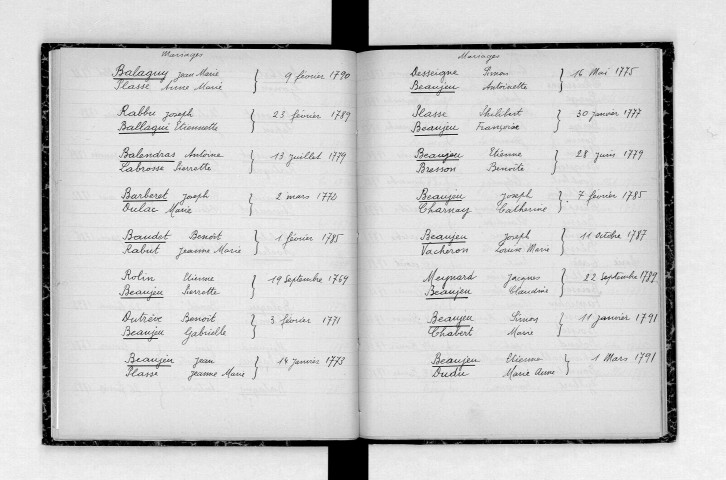 Mariages
Balaguy Jean Marie } 9 février 1790
Plasse Anne Marie
Rabbe Joseph } 23 février 1789
Ballagui Etiennette
Balendras Antoine } 13 juillet 1779
Labrosse Pierrette
Barberet Joseph } 2 mars 1772
Dulac Marie
Baudet Benoit } 1 février 1785
Rabut Jeanne Marie
Robin Etienne } 19 Septembre 1769
Beaujeu Pierrette
Dutrève Benoit } 3 février 1771
Beaujeu Gabrielle
Beaujeu Jean } 14 janvier 1773
Plasse Jeanne Marie
Mariages
Desseigne Simon } 16 Mai 1775
Beaujeu Antoinette
Plasse Philibert } 30 janvier 1777
Beaujeu Françoise
Beaujeu Etienne } 28 juin 1779
Bresson Benoite
Beaujeu Joseph } 7 février 1785
Charnay Catherine
Beaujeu Joseph } 11 Octobre 1787
Vacheron Louise Marie
Meynard Jacques } 22 Septembre 1789
Beaujeu Claudine
Beaujeu Simon } 11 janvier 1791
Chabert Marie
Beaujeu Etienne } 1 Mars 1791
Marie Anne